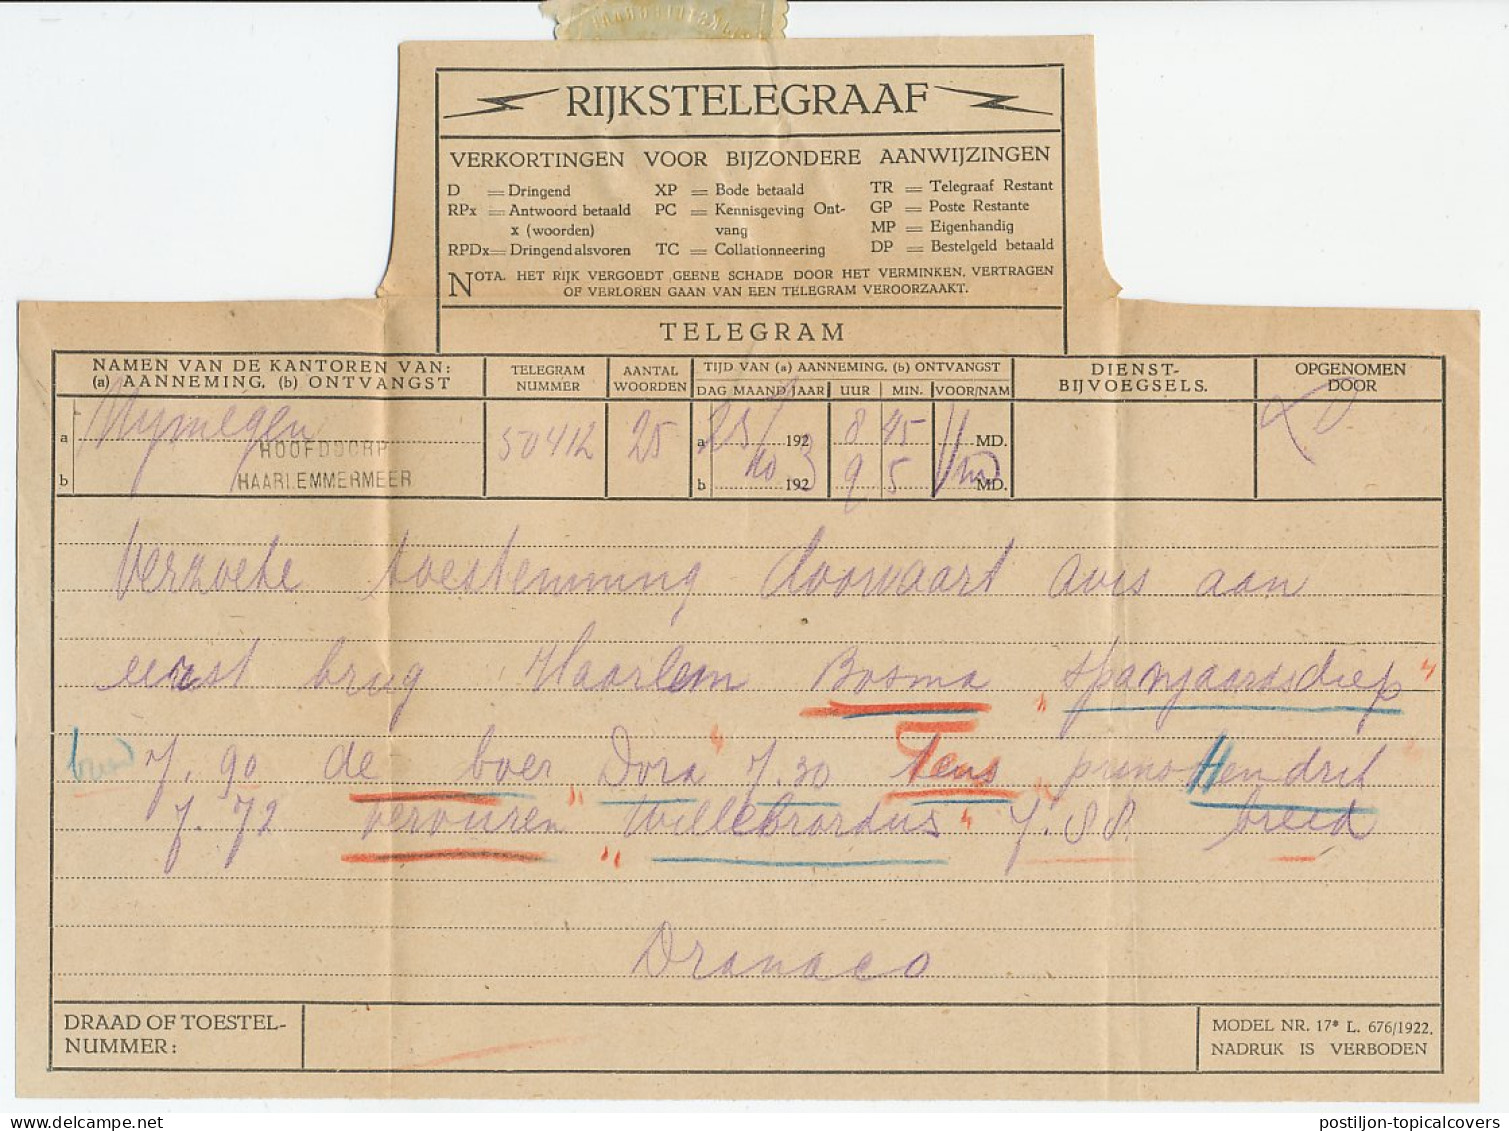 RIJKSTELEGRAAF
VERKORTINGEN VOOR BIJZONDERE AANWIJZINGEN
D = Dringend XP = Bode betaald TR = Telegraaf Restant
RPx = Antwoord betaald PC = Kennisgeving Ont- GP = Poste Restante
x (woorden) vang MP = Eigenhandig
RPDx = Dringend alsvoren TC = Collationneering DP = Bestelgeld betaald
NOTA. HET RIJK VERGOEDT GEENE SCHADE DOOR HET VERMINKEN, VERTRAGEN
OF VERLOREN GAAN VAN EEN TELEGRAM VEROORZAAKT.
TELEGRAM
NAMEN VAN DE KANTOREN VAN: (a) AANNEMING, (b) ONTVANGST
TELEGRAM NUMMER
AANTAL WOORDEN
TIJD VAN (a) AANNEMING, (b) ONTVANGST
DAG MAAND JAAR UUR MIN. VOOR/NAM
DIENST-BIJVOEGSELS.
OPGENOMEN DOOR
a Nymegen 50412 25 a 25/ 192 8 45 V MD.
HOOFDDORP
b HAARLEMMERMEER b 192 3 9 5 Vm MD.
Verzoeke toestemming doorvaart avis aan
eerst brug Haarlem Bosma "Spanjaardsdiep"
breed 7.90 de boer "Dora" 7.30 Tens "prins Hendrik"
7.72 vervuren "Willebrordus" 7.88 breed
Dranaco
DRAAD OF TOESTEL-
NUMMER:
MODEL NR. 17* L. 676/1922.
NADRUK IS VERBODEN
www.delcampe.net
postiljon-topicalcovers